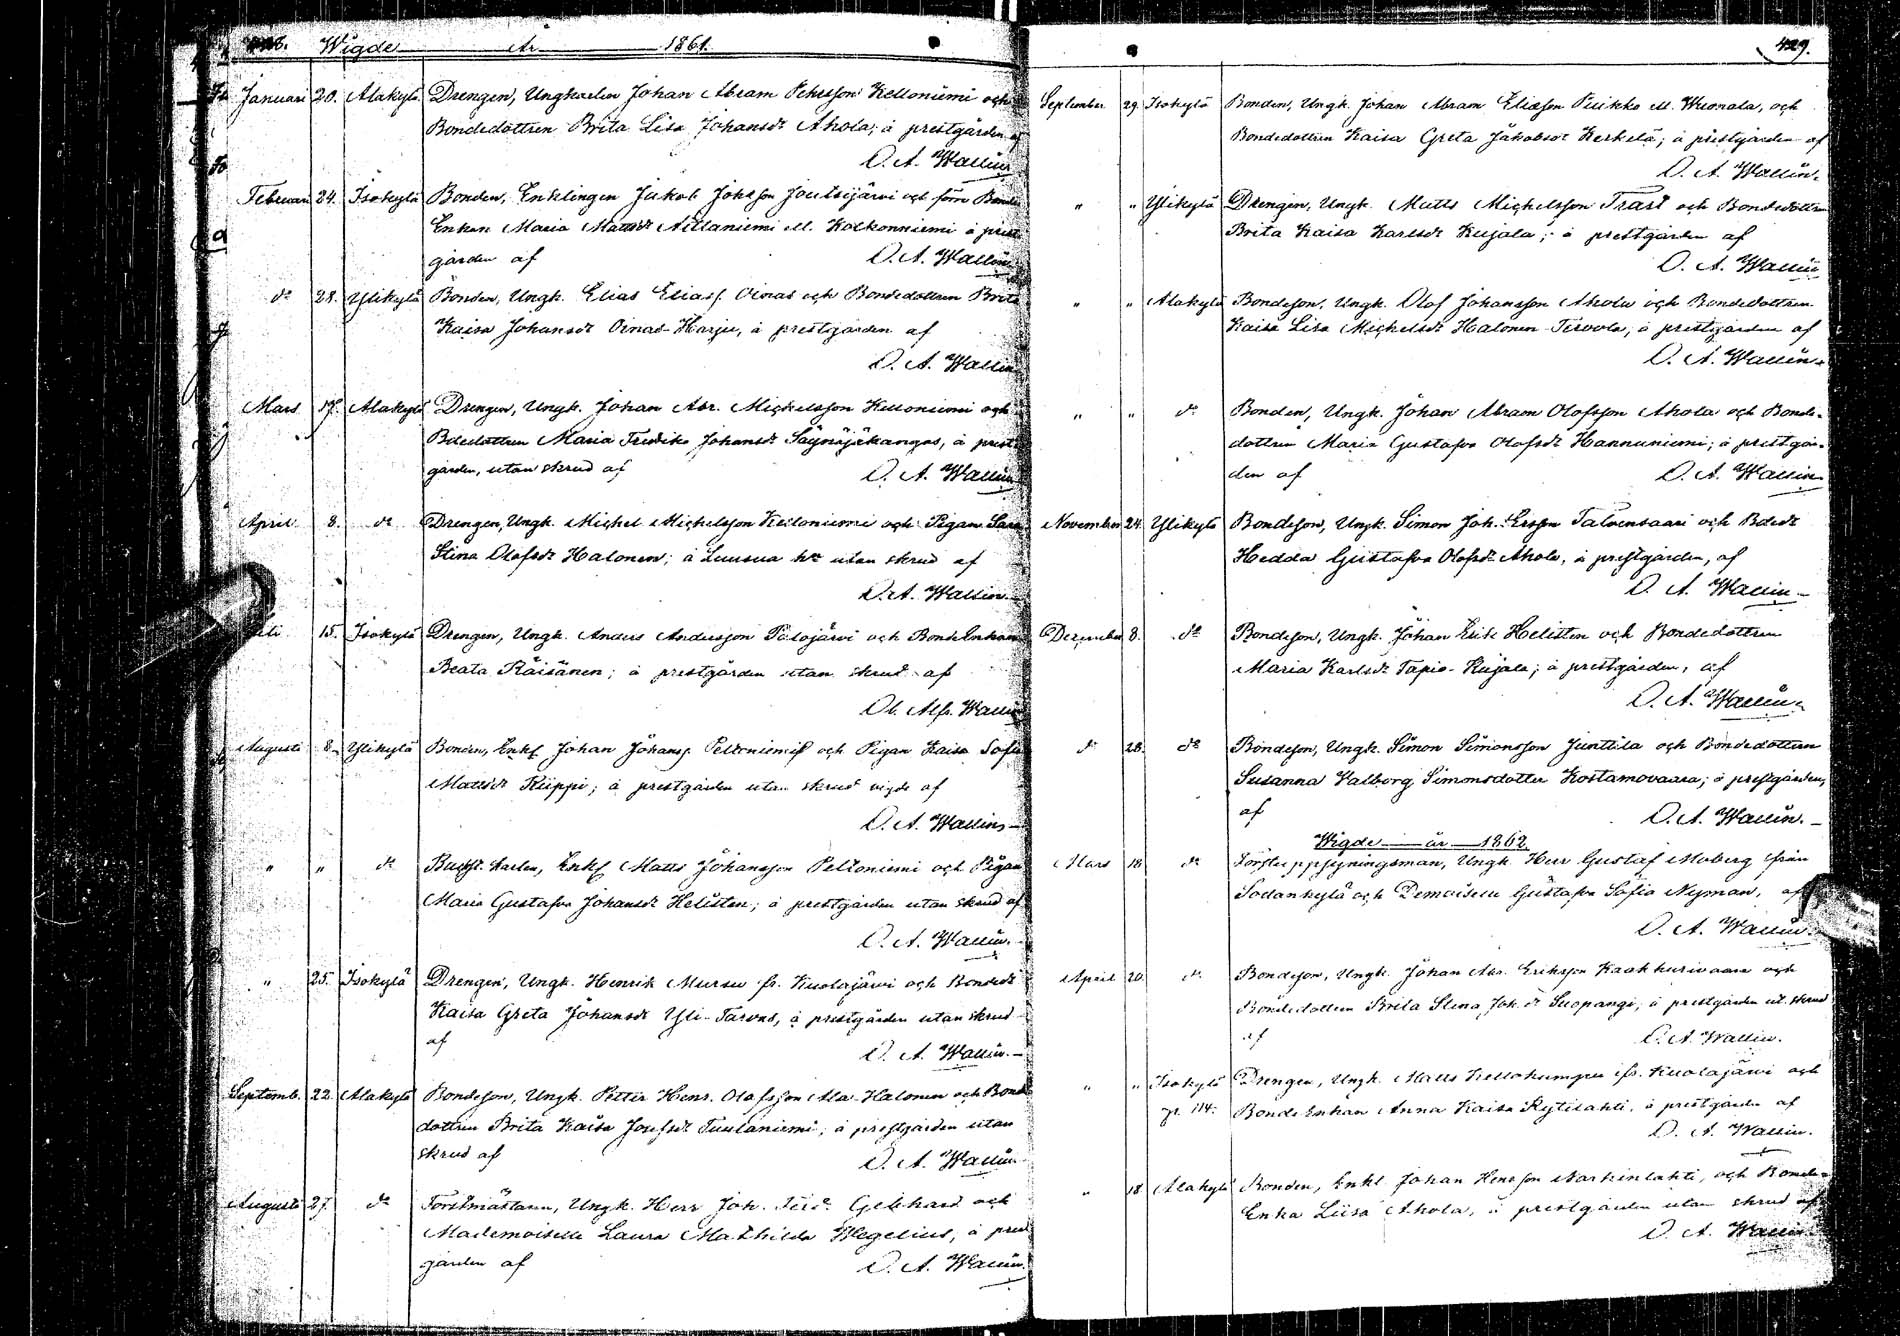 428. Wigde År 1861.
Januari 20. Alakylä Drengen, Ungkarlen Johan Abram Pehrsson Kelloniemi och
Bondedottren Brita Lisa Johansdr Ahola; å prestgården af
O. A. Wallin
Februari 24. Isokylä Bonden, Enklingen Jakob Johsson Joutsijärvi och förre Bonde
Enkan Maria Mattsdr Kolkonniemi å prest
gården af O. A. Wallin
do 28. Ylikylä Bonden, Ungk. Elias Eliass. Oinas och Bondedottren Brita
Kaisa Johansdr Oinas-Harju, å prestgården af
O. A. Wallin
Mars 17. Alakylä Drengen, Ungk. Johan Abr. Michelsson Kelloniemi och
Bdedottren Maria Fredrika Johansdr Säynäjäkangas, å prest
gården, utan skrud af O. A. Wallin
April 8. do Drengen, Ungk. Michel Michelsson Kelloniemi och Pigan Sara
Stina Olofsdr Halonen; å Luusua by utan skrud af
O. A. Wallin.
15. Isokylä Drengen, Ungk. Anders Andersson Pölöjärvi och BondeEnkan
Beata Räisänen; å prestgården utan skrud af
Ol. Alfr. Wallin
Augusti 8. Ylikylä Bonden, Enkl Johan Johanss. Peltoniemi och Pigan Kaisa Sofia
Mattsdr Kiippi; å prestgården utan skrud vigde af
O. A. Wallin
" " do Backst. karlen, Enkl Matts Johansson Peltoniemi och Pigan
Maria Gustafva Johansdr Helisten; å prestgården utan skrud af
O. A. Wallin.
" 25. Isokylä Drengen, Ungk. Henrik Mursu fr. Kuolajärvi och Bondedr
Kaisa Greta Johansdr Yli-Tarvas, å prestgården utan skrud
af O. A. Wallin.
Septemb. 22. Alakylä Bondeson, Ungk. Petter Henr. Olofsson Ala-Halonen och Bonde
dottren Brita Kaisa Josefsdr Tuulaniemi; å prestgården utan
skrud af O. A. Wallin
Augusti 27. do Forstmästaren, Ungk. Herr Joh. Ferd. Gebhard och
Mademoiselle Laura Mathilda Wegelius, å prest
gården af O. A. Wallin.
429.
September 29. Isokylä Bonden, Ungk. Johan Abram Eliasson Puikko ell. Wuonala, och
Bondedottren Kaisa Greta Jakobsdr Kerkelä; å prestgården af
O. A. Wallin.
" " Ylikylä Drengen, Ungk. Matts Michelsson Trast och Bondedottren
Brita Kaisa Karlsdr Kujala; å prestgården af
O. A. Wallin
" " Alakylä Bondeson, Ungk. Olof Johansson Ahola och Bondedottren
Kaisa Lisa Michelsdr Halonen-Tervola, å prestgården af
O. A. Wallin.
" " do Bonden, Ungk. Johan Abram Olofsson Ahola och Bonde-
dottren Maria Gustafva Olofsdr Hannuniemi; å prestgår-
den af O. A. Wallin
November 24. Ylikylä Bondeson, Ungk. Simon Joh. Ersson Talvensaari och Bdedr
Hedda Gustafva Olofsdr Ahola, å prestgården, af
O. A. Wallin
December 8. do Bondeson, Ungk. Johan Erik Helisten och Bondedottren
Maria Karlsdr Tapio-Kujala; å prestgården, af
O. A. Wallin
do 28. do Bondeson, Ungk. Simon Simonsson Junttila och Bondedottren
Susanna Valborg Simonsdotter Kostamovaara; å prestgården,
af O. A. Wallin.
Wigde år 1862
Mars 18. do Forstuppsyningsman, Ungk Herr Gustaf Moberg från
Sodankylä och Demoiselle Gustafva Sofia Nyman, af
O. A. Wallin.
April 20. do Bondeson, Ungk. Johan Abr. Eriksson Kaakkurivaara och
Bondedottren Brita Stina Joh.dr Suopangi, å prestgården ut. skrud
af O. A. Wallin.
" " Isokylä Drengen, Ungk. Matts Kellokumpu fr. Kuolajärvi och
p. 114. BondeEnkan Anna Kaisa Kytilahti, å prestgården af
O. A. Wallin.
" 18 Alakylä Bonden, Enkl Johan Henrsson Narkinlahti, och Bonde-
Enka Liisa Ahola, å prestgården utan skrud af
O. A. Wallin